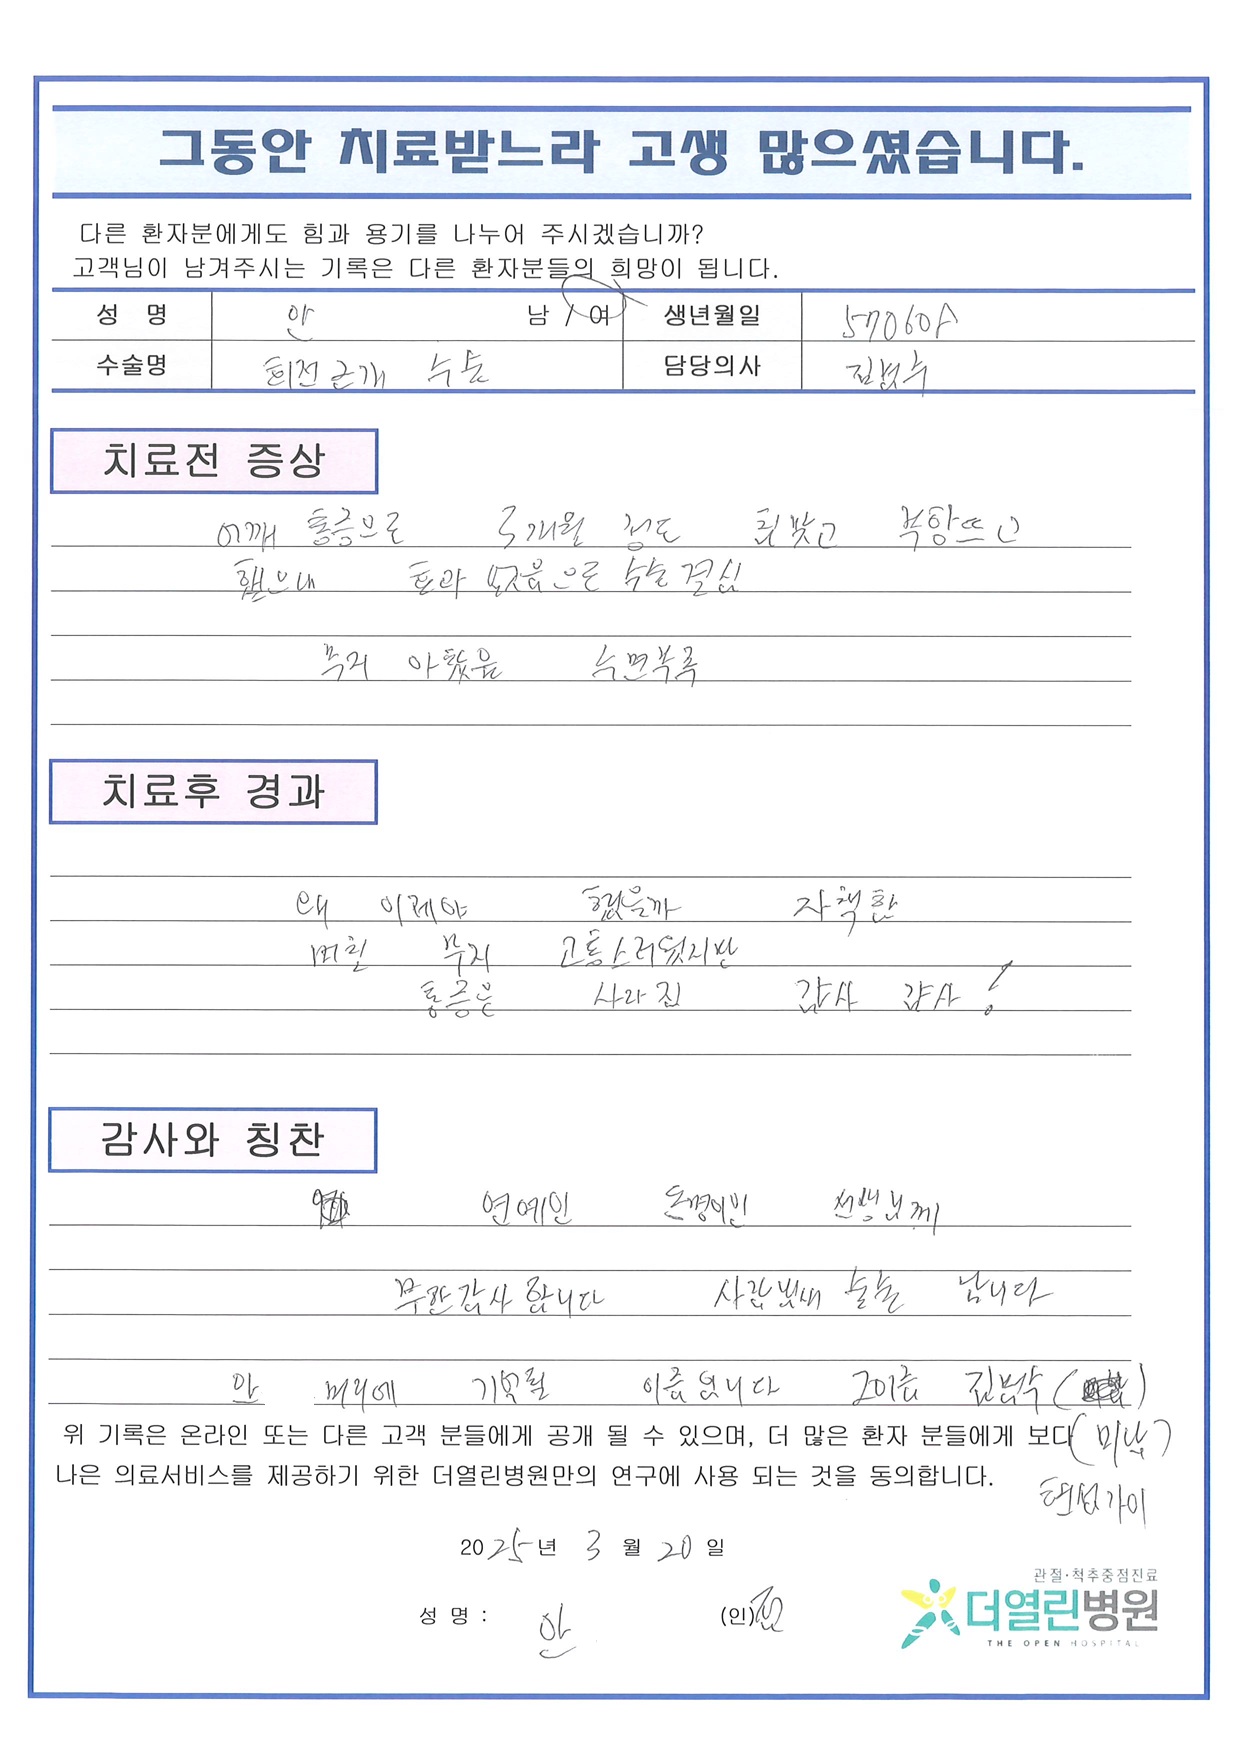 그동안 치료받느라 고생 많으셨습니다.
다른 환자분에게도 힘과 용기를 나누어 주시겠습니까?
고객님이 남겨주시는 기록은 다른 환자분들의 희망이 됩니다.
성 명 안 남 / 여 생년월일
수술명 회전근개 수술 담당의사 김범수
치료전 증상
어깨 통증으로 5개월 정도 침맞고 부항뜨고
했으나 효과 없음으로 수술결심
무지 아팠음 수면부족
치료후 경과
왜 이제야 했을까 자책함
며칠 무지 고통스러웠지만
통증은 사라짐 감사 감사!
감사와 칭찬
연예인 선생님께
무한감사합니다 사람냄새 술술 납니다
안 머리에 기억될 이름입니다 그이름 김범수
위 기록은 온라인 또는 다른 고객 분들에게 공개 될 수 있으며, 더 많은 환자 분들에게 보다 (미남)
나은 의료서비스를 제공하기 위한 더열린병원만의 연구에 사용 되는 것을 동의합니다.
2025년 3월 20일
성 명 : 안 (인)
관절·척추중점진료
더열린병원
THE OPEN HOSPITAL